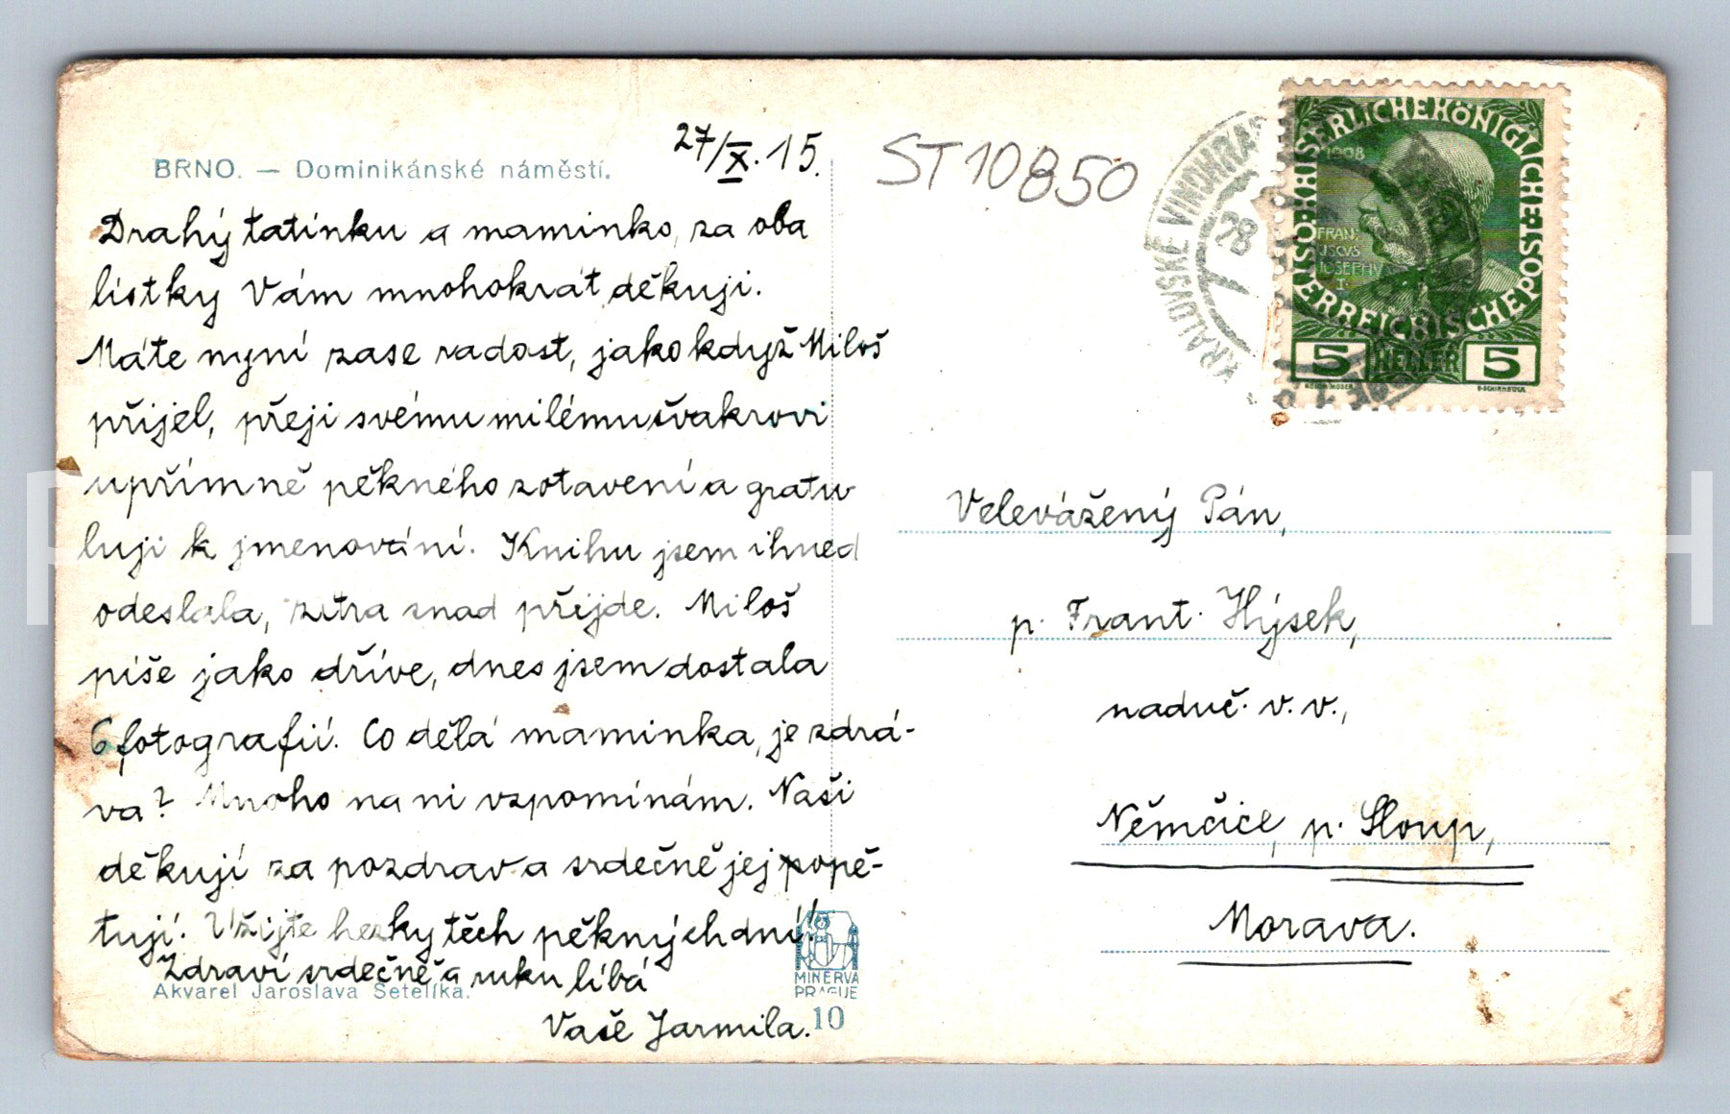 27/X. 15.
ST10850
BRNO. — Dominikánské náměstí.
Drahý tatínku a maminko, za oba
lístky Vám mnohokrát děkuji.
Máte nyní zase radost, jako když Miloš
přijel, přeji svému milému švakrovi
upřímně pěkného zotavení a gratu-
luji k jmenování. Knihu jsem ihned
odeslala, zítra snad přijde. Miloš
píše jako dříve, dnes jsem dostala
6 fotografií. Co dělá maminka, je zdrá-
va? Mnoho na ni vzpomínám. Naši
děkují za pozdrav a srdečně jej popě-
tují. Užijte hezky těch pěkných dní!
Zdraví srdečně a ruku líbá
Vaše Jarmila.
Akvarel Jaroslava Šetelíka.
MINERVA
PRAGUE
10
KRÁLOVSKÉ VINOHRA
28
KAISERLICHE KÖNIGLICHE ÖSTERREICHISCHE POST
1908
FRAN
ISCVS
IOSEPHV
I
5 HELLER 5
Velevážený Pán,
p. Frant. Hýsek,
naduč. v. v.,
Němčice, p. Sloup,
Morava.